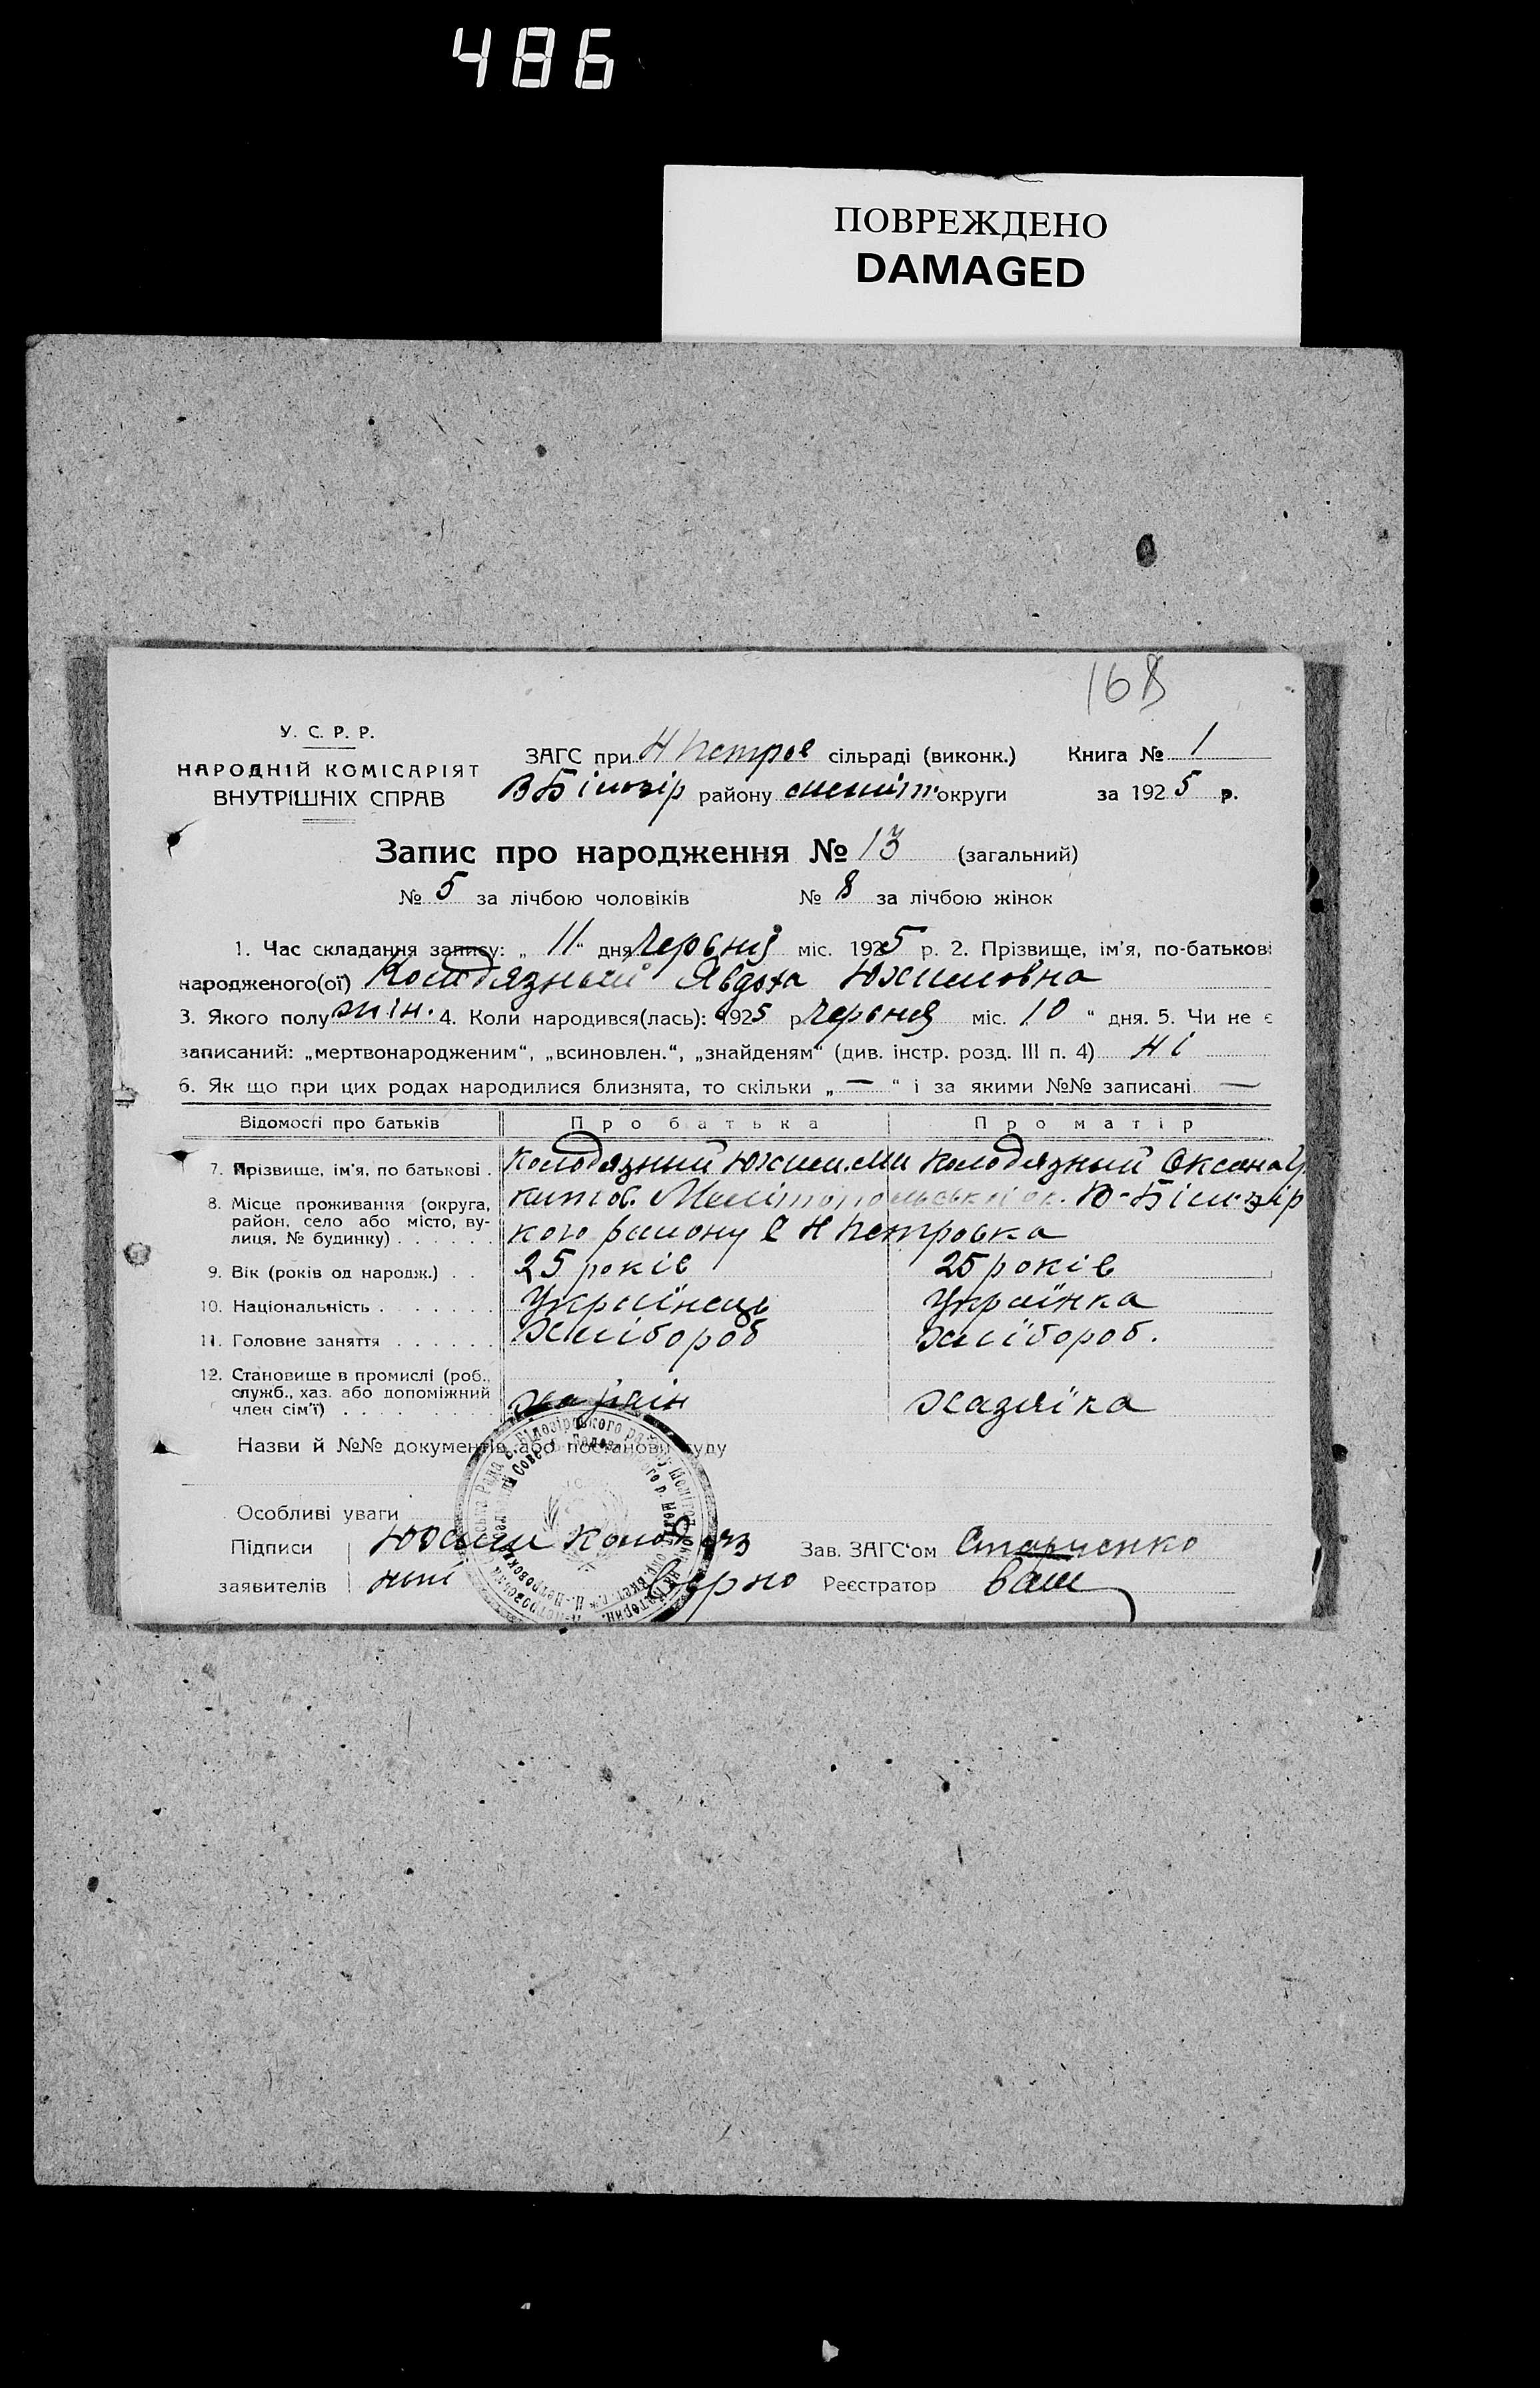 486
ПОВРЕЖДЕНО
DAMAGED
168
У. С. Р. Р.
НАРОДНІЙ КОМІСАРІЯТ
ВНУТРІШНІХ СПРАВ
ЗАГС при Н Петров сільраді (виконк.) Книга № 1
В Білозір району меліт. округи за 1925 р.
Запис про народження № 13 (загальний)
№ 5 за лічбою чоловіків № 8 за лічбою жінок
1. Час складання запису: „ 11 “ дня Червня міс. 1925 р. 2. Прізвище, ім'я, по-батькові
народженого(ої) Колодязный Явдоха Юхимовна
3. Якого полу жін. 4. Коли народився(лась): 1925 р Червня міс. 10 “ дня. 5. Чи не є
записаний: „мертвонародженим“, „всиновлен.“, „знайденям“ (див. інстр. розд. III п. 4) Ні
6. Як що при цих родах народилися близнята, то скільки „ — “ і за якими №№ записані —
Відомості про батьків Про батька Про матір
7. Прізвище, ім'я, по батькові . Колодязний Юхим. Ми Колодязный Оксана
8. Місце проживання (округа, район, село або місто, вулиця, № будинку) . . . . . .
Мелітопольської ок. В-Білозір
кого району с Н Петровка
9. Вік (років од народж.) . . 25 років 25 років
10. Національність . . . . . . . Українець Українка
11. Головне заняття . . . . . . Хлібороб хлібороб.
12. Становище в промислі (роб., служб., хаз. або допоміжний член сім'ї) . . . . . . . . хазяін хазяїка
Назви й №№ документів або постанови суду
Особливі уваги
Підписи Юхим Колодяз Зав. ЗАГС'ом Старченко
заявителів ний Верно Реєстратор